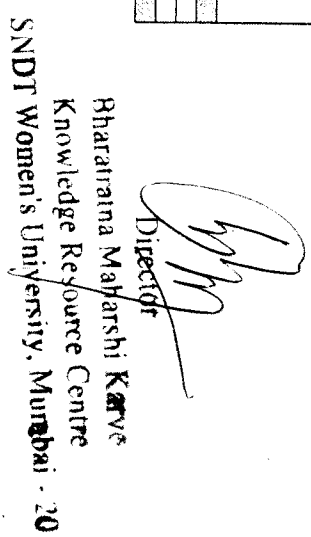 Director
Bharatratna Maharshi Karve
Knowledge Resource Centre
SNDT Women's University, Mumbai - 20